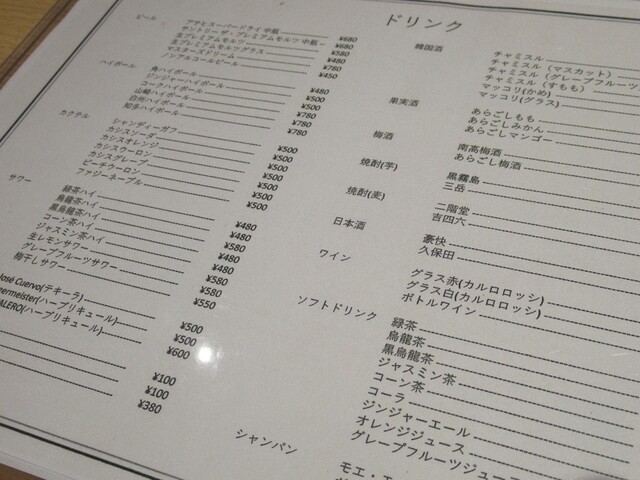 ドリンク
ビール
アサヒスーパードライ 中瓶 ¥680
サントリー ザ・プレミアムモルツ 中瓶 ¥680
生プレミアムモルツ ¥580
生プレミアムモルツグラス ¥480
マスターズドリーム ¥780
ノンアルコールビール ¥450
ハイボール
角ハイボール ¥480
ジンジャーハイボール ¥500
コークハイボール ¥500
山崎ハイボール ¥780
白州ハイボール ¥780
知多ハイボール ¥780
カクテル
シャンディーガフ ¥500
カシスソーダ ¥500
カシスオレンジ ¥500
カシスウーロン ¥500
カシスグレープ ¥500
ピーチウーロン
ファジーネーブル
サワー
緑茶ハイ ¥480
烏龍茶ハイ ¥480
黒烏龍茶ハイ ¥580
コーン茶ハイ ¥480
ジャスミン茶ハイ ¥480
生レモンサワー ¥580
グレープフルーツサワー ¥580
梅干しサワー ¥550
José Cuervo(テキーラ) ¥500
ermeister(ハーブリキュール) ¥500
ALERO(ハーブリキュール) ¥600
¥100
¥100
¥380
韓国酒
チャミスル
チャミスル(マスカット)
チャミスル(グレープフルーツ
チャミスル(すもも)
マッコリ(かめ)
マッコリ(グラス)
果実酒
あらごしもも
あらごしみかん
あらごしマンゴー
梅酒
南高梅酒
あらごし梅酒
焼酎(芋)
黒霧島
三岳
焼酎(麦)
二階堂
吉四六
日本酒
豪快
久保田
ワイン
グラス赤(カルロロッシ)
グラス白(カルロロッシ)
ボトルワイン
ソフトドリンク
緑茶
烏龍茶
黒烏龍茶
ジャスミン茶
コーン茶
コーラ
ジンジャーエール
オレンジジュース
グレープフルーツジュース
シャンパン
モエ・エ